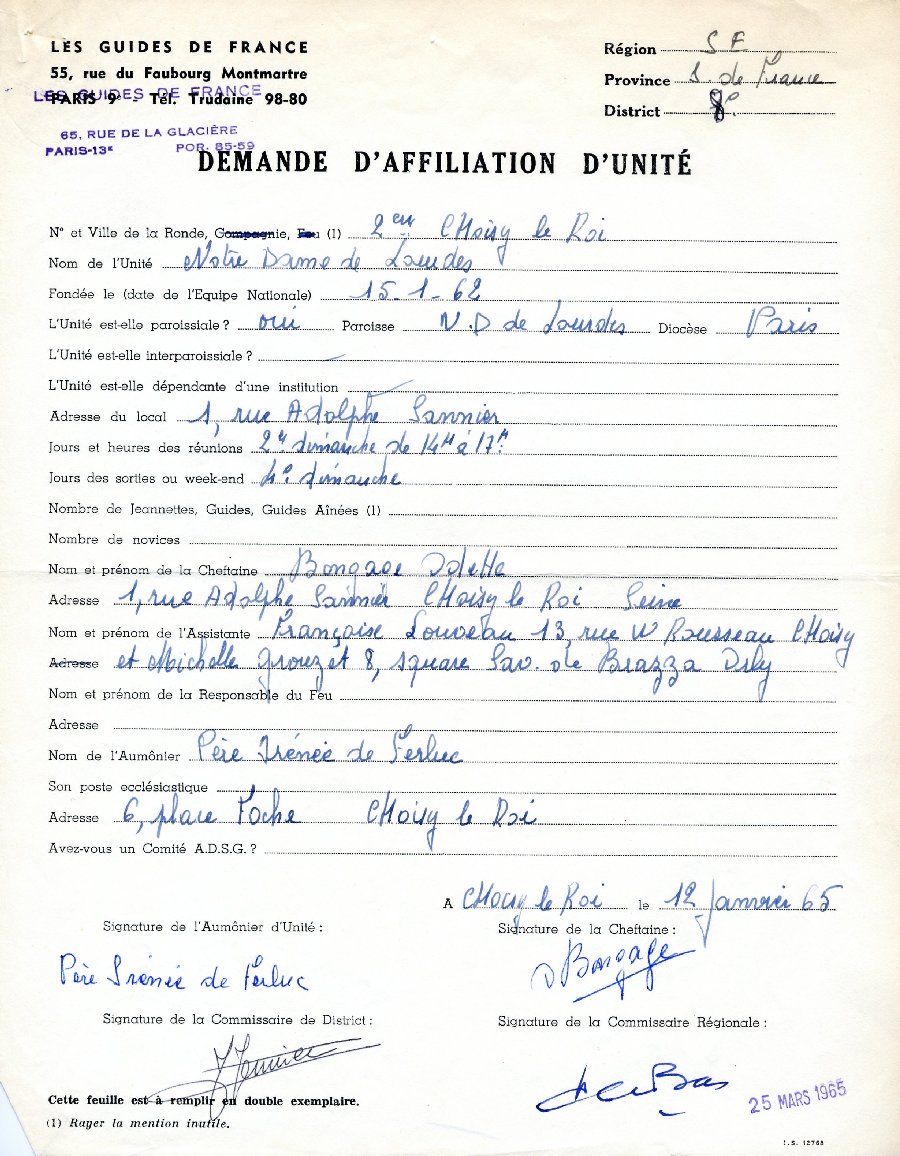 LES GUIDES DE FRANCE
55, rue du Faubourg Montmartre
PARIS 9e - Tél. Trudaine 98-80
LES GUIDES DE FRANCE
65, RUE DE LA GLACIÈRE
PARIS-13e POR. 85-59
Région S F
Province de France
District 8e
DEMANDE D'AFFILIATION D'UNITÉ
N° et Ville de la Ronde, Compagnie, Feu (1) 2em CHoisy le Roi
Nom de l'Unité Notre Dame de Lourdes
Fondée le (date de l'Equipe Nationale) 15-1-62
L'Unité est-elle paroissiale ? oui Paroisse N.D de Lourdes Diocèse Paris
L'Unité est-elle interparoissiale ? -
L'Unité est-elle dépendante d'une institution
Adresse du local 1, rue Adolphe Sannier
Jours et heures des réunions 2e dimanche de 14H à 17H
Jours des sorties ou week-end 4e dimanche
Nombre de Jeannettes, Guides, Guides Aînées (1)
Nombre de novices
Nom et prénom de la Cheftaine Bongage Odette
Adresse 1, rue Adolphe Sannier CHoisy le Roi Seine
Nom et prénom de l'Assistante Françoise Louveau 13, rue W Rousseau CHoisy
Adresse et Michelle Grouzet 8, square Sav. de Brazza Orly
Nom et prénom de la Responsable du Feu
Adresse
Nom de l'Aumônier Père Irénée de Ferluc
Son poste ecclésiastique
Adresse 6, place Foche CHoisy le Roi
Avez-vous un Comité A.D.S.G. ?
A CHoisy le Roi le 12 Janvier 65
Signature de l'Aumônier d'Unité :
Signature de la Cheftaine :
Père Irénée de Ferluc
O Bongage
Signature de la Commissaire de District :
Signature de la Commissaire Régionale :
25 MARS 1965
Cette feuille est à remplir en double exemplaire.
(1) Rayer la mention inutile.
I.S. 12768